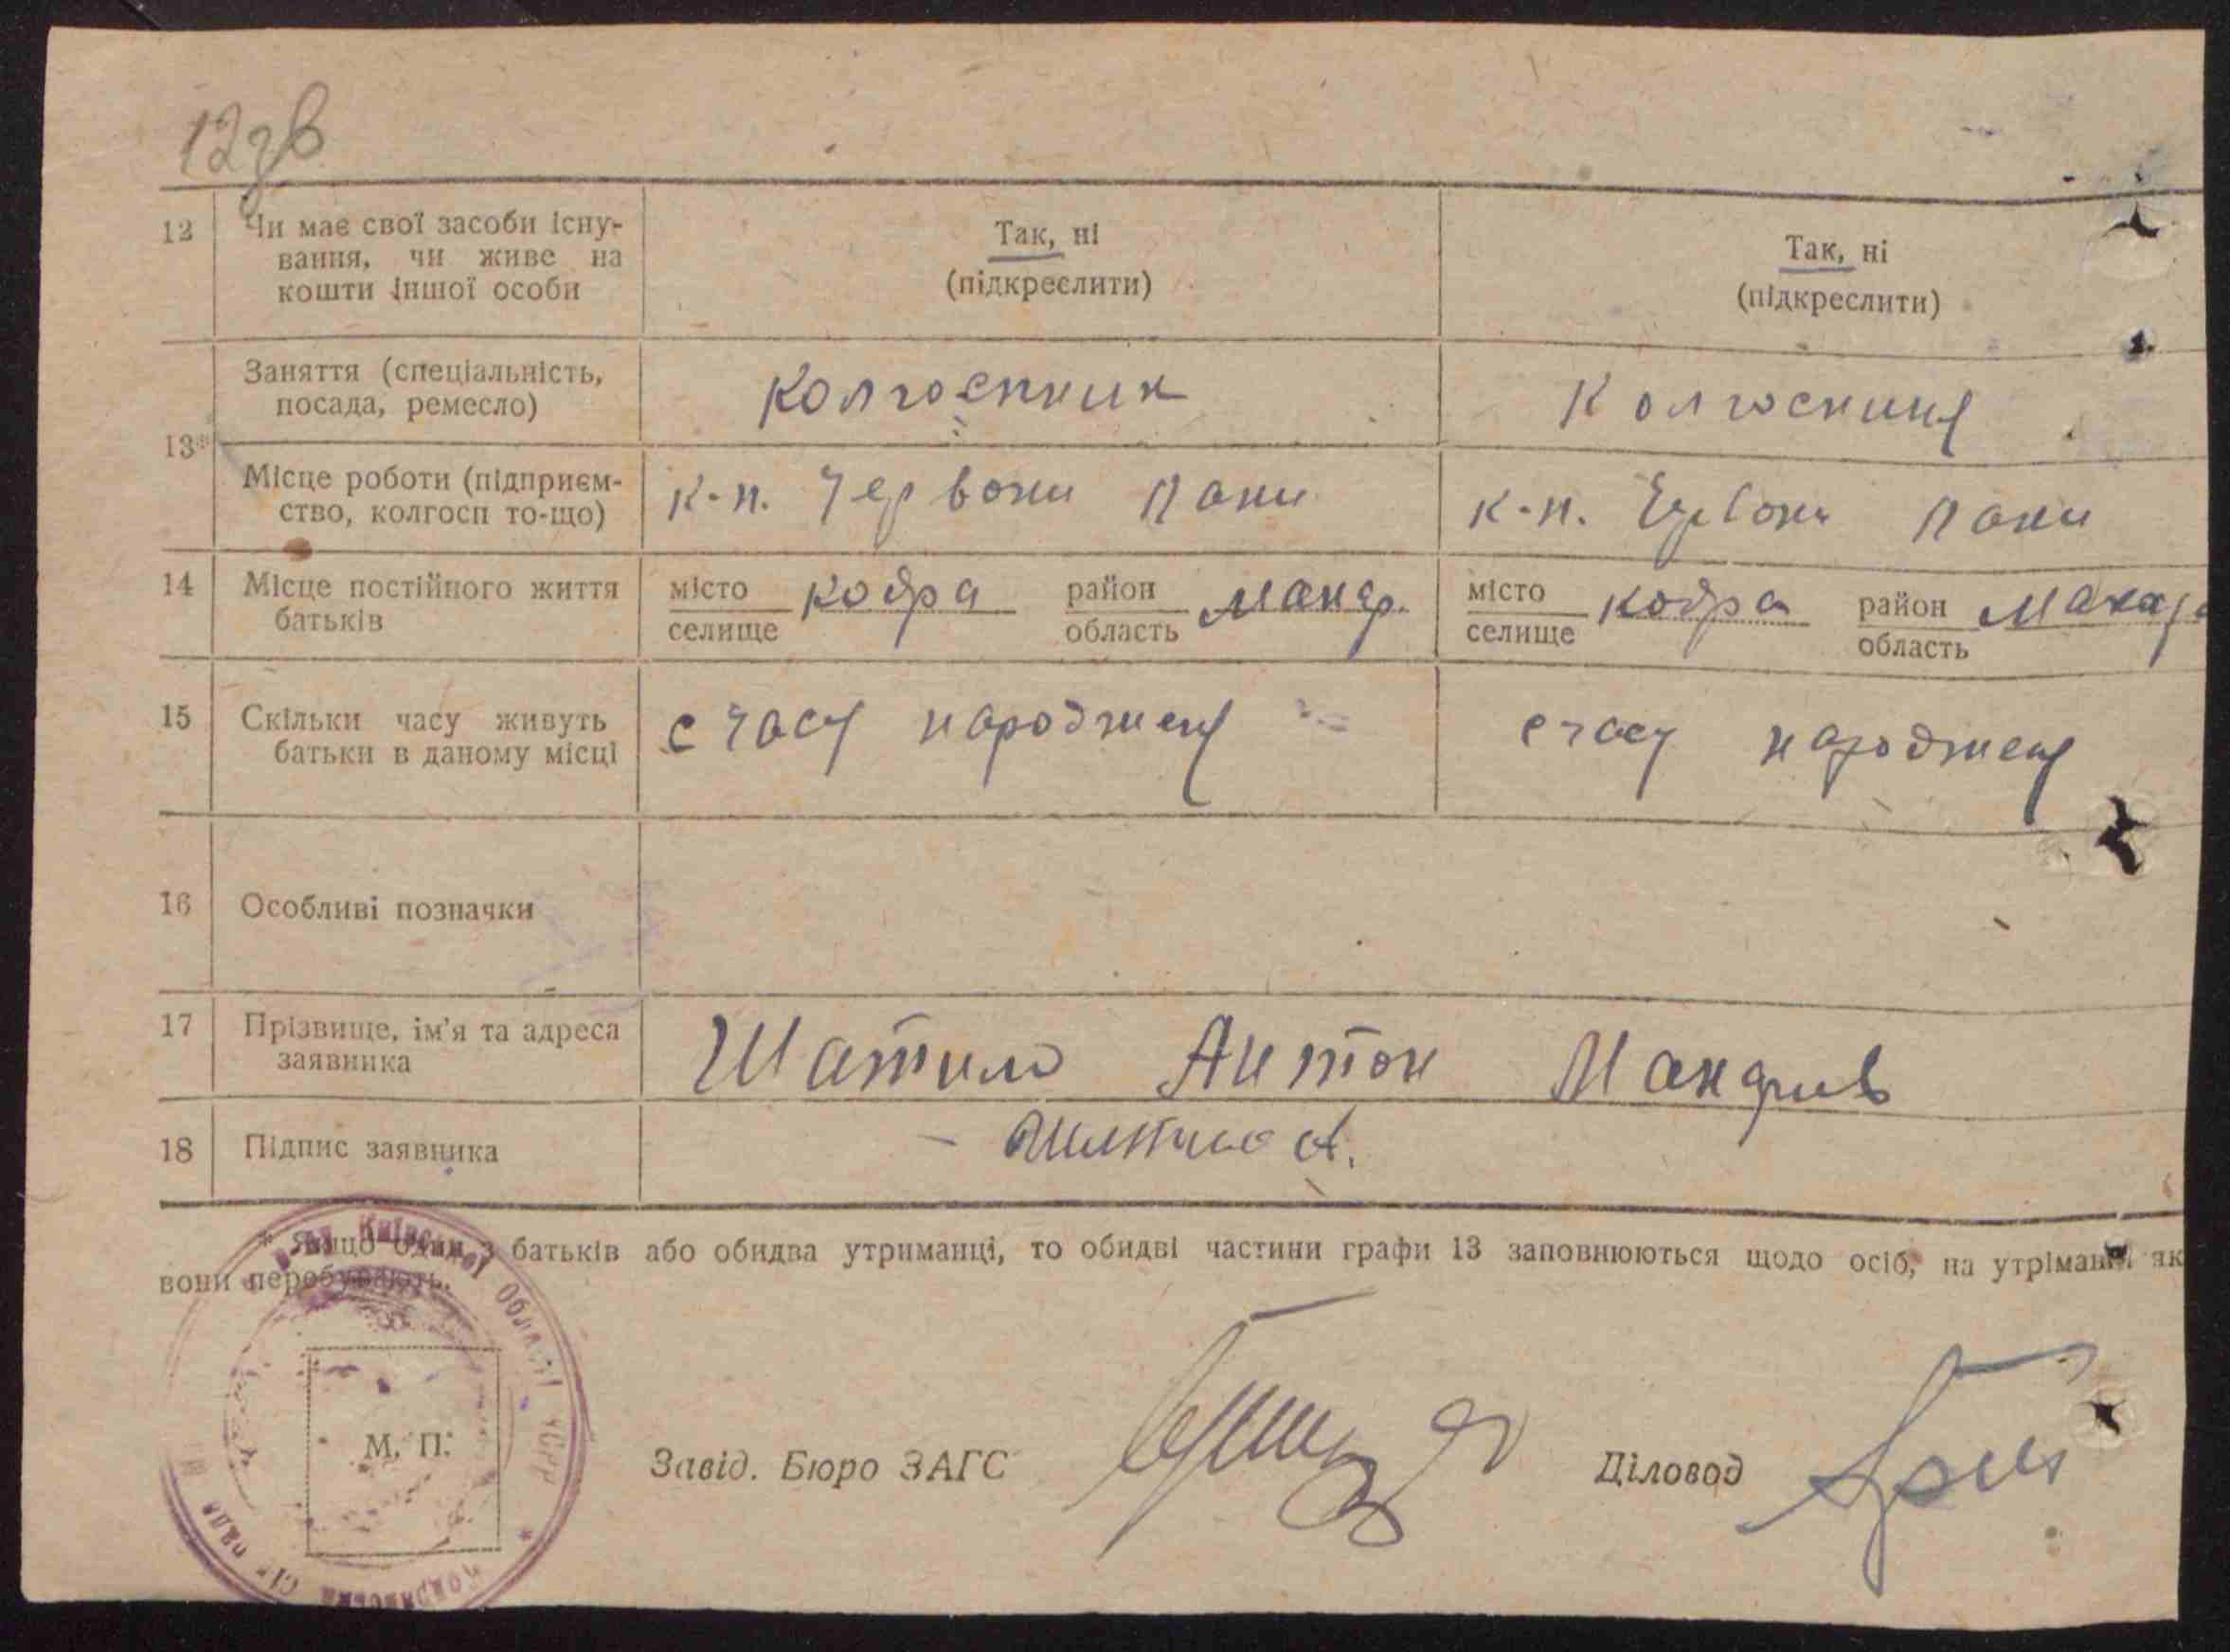 12зв
12 Чи має свої засоби існу- Так, ні Так, ні
вання, чи живе на (підкреслити) (підкреслити)
кошти іншої особи
Заняття (спеціальність, Колгоспник Колгоспниця
посада, ремесло)
13*
Місце роботи (підприєм- к-п. Червони лани к-п. Червони лани
ство, колгосп то-що)
14 Місце постійного життя місто кодра район Макар. місто кодра район Макар
батьків селище область селище область
15 Скільки часу живуть с часу народженя с часу народженя
батьки в даному місці
16 Особливі позначки
17 Прізвище, ім'я та адреса Шатило Антон
заявника
18 Підпис заявника А.
* Якщо один з батьків або обидва утриманці, то обидві частини графи 13 заповнюються щодо осіб, на утріманні як
вони перебувають.
р-ну Київської Області УСРР * Кодрянська сіл рада
М. П.
Завід. Бюро ЗАГС Діловод